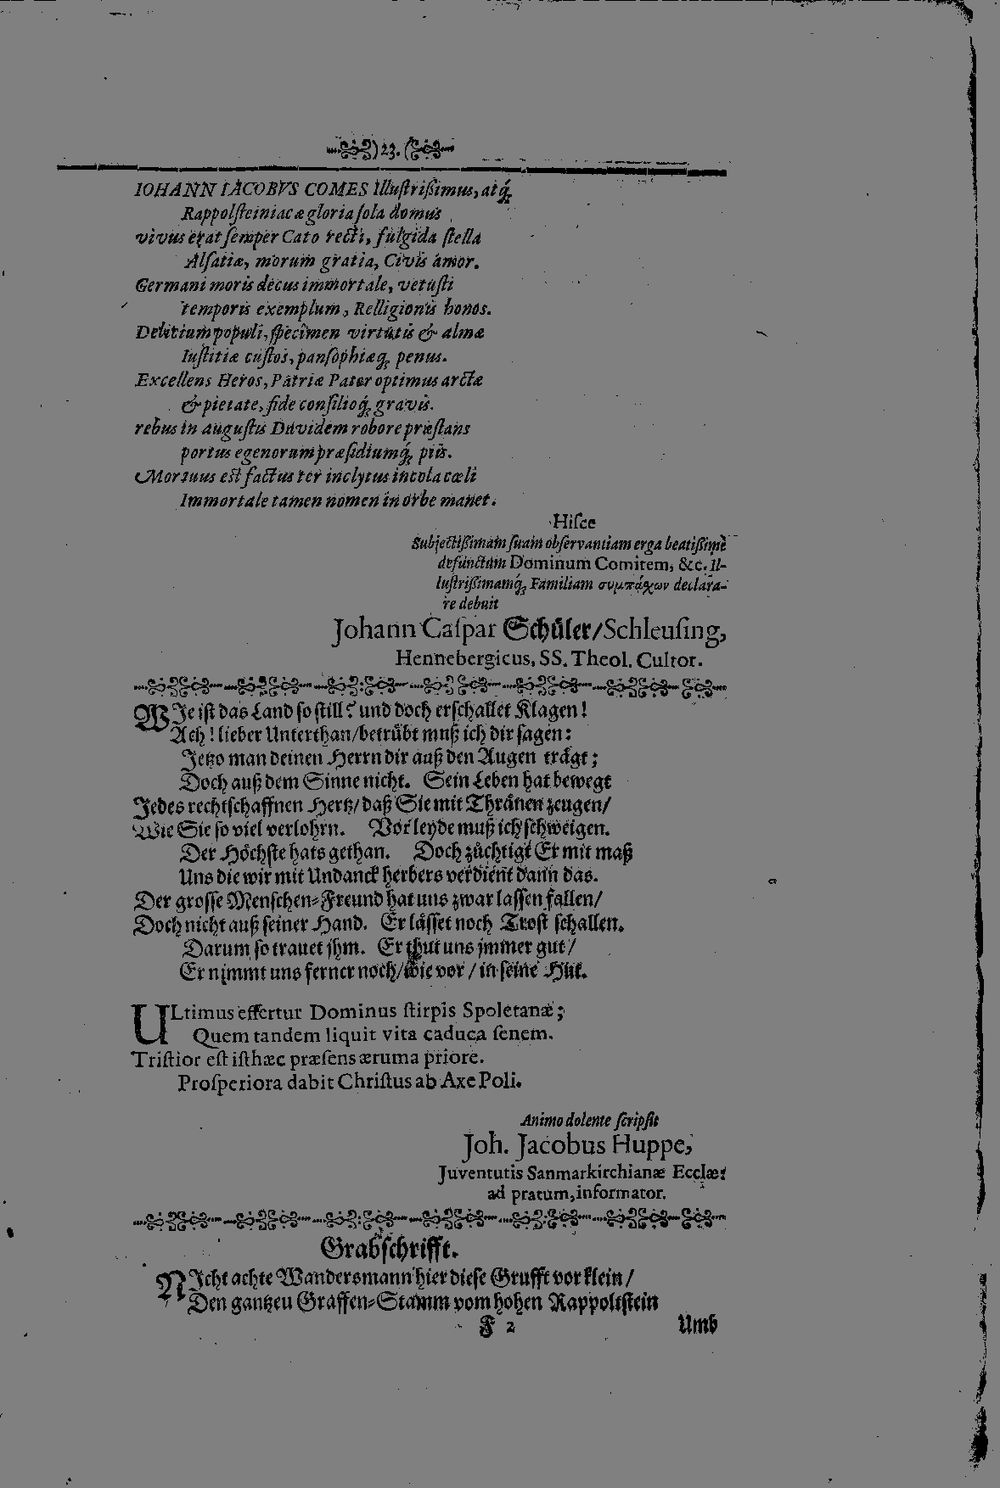 )23.(
IOHANN IACOBVS COMES illuſtrißimus, atq́;
Rappolſteiniacæ gloria ſola domus
vivus erat ſemper Cato recti, fulgida ſtella
Alſatiæ, morum gratia, Civis amor.
Germani moris decus immortale, vetuſti
temporis exemplum, Relligionis honos.
Delitium populi, ſpecimen virtutis & almæ
Iuſtitiæ cuſtos, panſophiæq́; penus.
Excellens Heros, Patriæ Pater optimus arctæ
& pietate, fide conſilioq́; gravis.
rebus in anguſtis Davidem robore præſtans
portus egenorum præſidiumq́; piis.
Mortuus eſt factus ter inclytus incola cœli
Immortale tamen nomen in orbe manet.
Hiſce
Subjectißimam ſuam obſervantiam erga beatißimè
defunctum Dominum Comitem, &c. Il-
luſtrißimamq́; Familiam συμπάχων declara-
re debuit
Johann Caſpar Schüler/Schleuſing,
Hennebergicus, SS. Theol. Cultor.
WJe iſt das Land ſo ſtill? und doch erſchallet Klagen!
Ach! lieber Unterthan/betrübt muß ich dir ſagen:
Jetzo man deinen Herrn dir auß den Augen trägt;
Doch auß dem Sinne nicht. Sein Leben hat bewegt
Jedes rechtſchaffnen Hertz/daß Sie mit Thränen zeugen/
Wie Sie ſo viel verlohrn. Vor leyde muß ich ſchweigen.
Der Höchſte hats gethan. Doch züchtigt Er mit maß
Uns die wir mit Undanck herbers verdient dann das.
Der groſſe Menſchen-Freund hat uns zwar laſſen fallen/
Doch nicht auß ſeiner Hand. Er läſſet noch Troſt ſchallen.
Darum ſo trauet jhm. Er thut uns jmmer gut/
Er nimmt uns ferner noch/wie vor/in ſeine Hut.
ULtimus effertur Dominus ſtirpis Spoletanæ;
Quem tandem liquit vita caduca ſenem.
Triſtior eſt iſthæc præſens æruma priore.
Proſperiora dabit Chriſtus ab Axe Poli.
Animo dolente ſcripſit
Joh. Jacobus Huppe,
Juventutis Sanmarkirchianæ Ecclæ:
ad pratum, informator.
Grabſchrifft.
NJcht achte Wandersmann hier dieſe Grufft vor klein/
Den gantzen Graffen-Stamm vom hohen Rappoltſtein
F 2
Umb